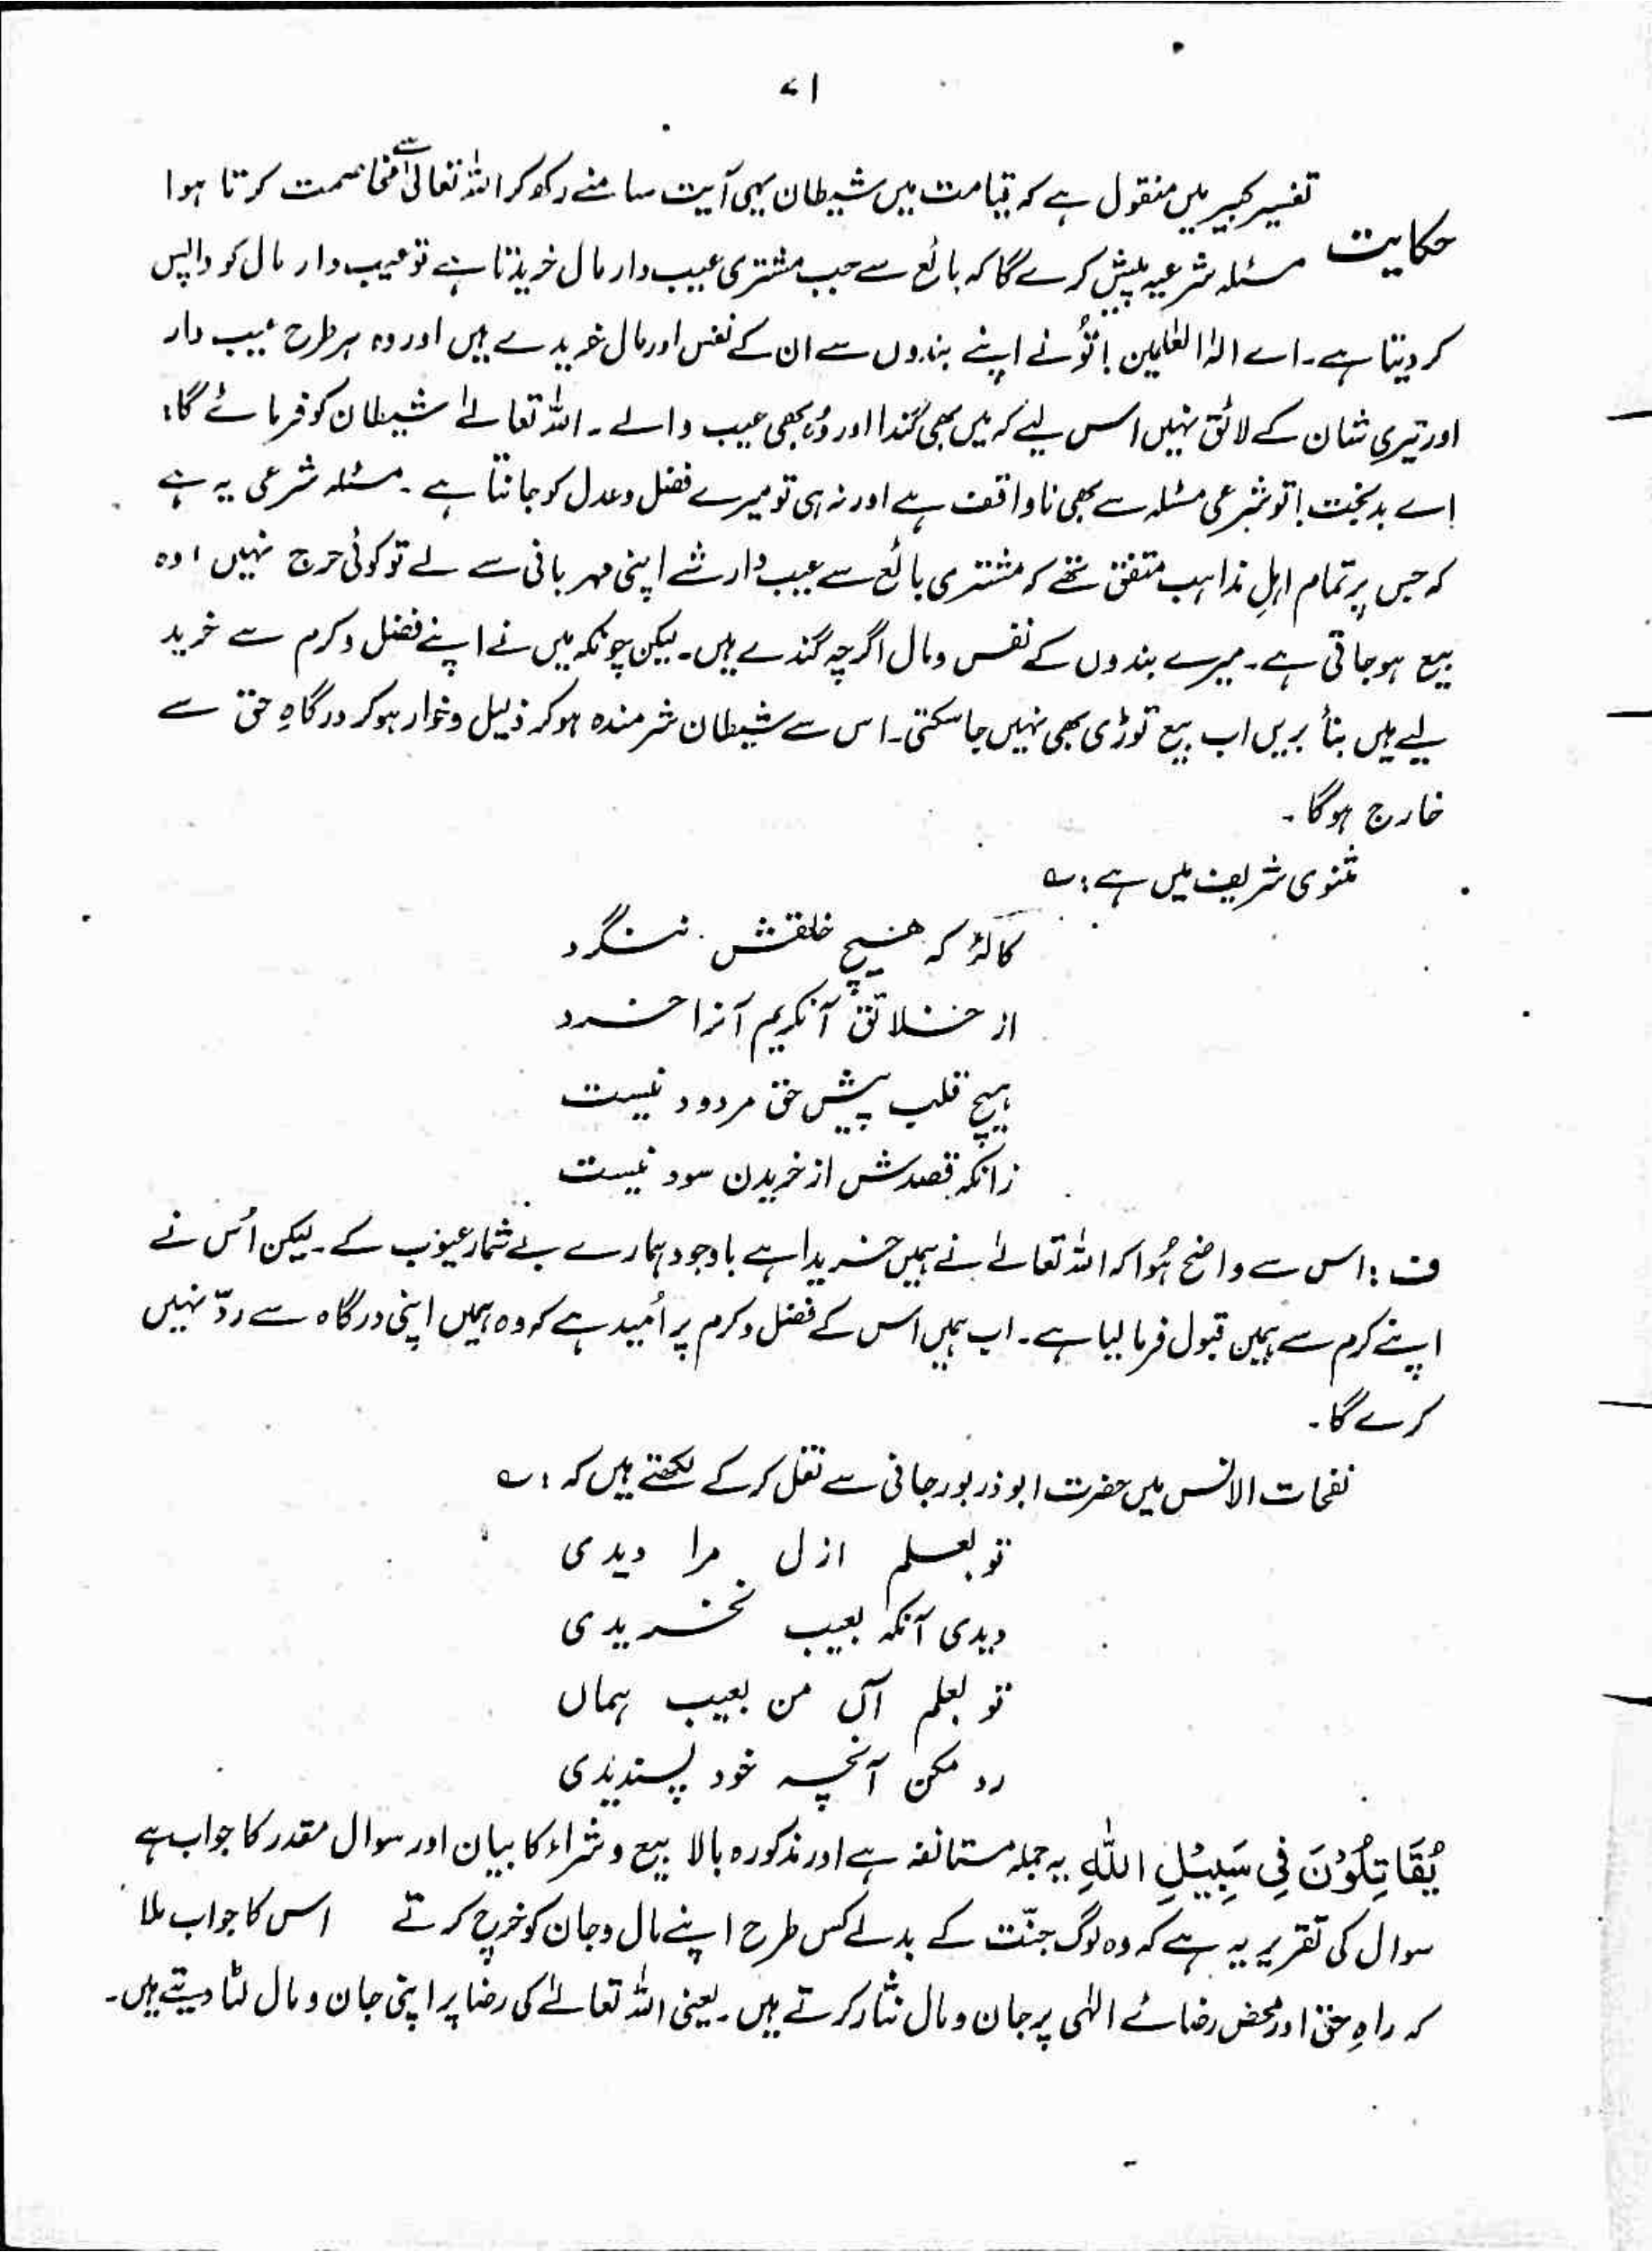 ۷۱
تفسیر کبیر میں منقول ہے کہ قیامت میں شیطان یہی آیت سامنے رکھ کر اللہ تعالیٰ سے مخاصمت کرتا ہوا
حکایت مسئلہ شرعیہ پیش کرے گا کہ بائع سے جب مشتری عیب دار مال خریدتا ہے تو عیب دار مال کو واپس
کر دیتا ہے۔ اے الٰہ العٰلمین! تُو نے اپنے بندوں سے ان کے نفس اور مال خریدے ہیں اور وہ ہر طرح عیب دار
اور تیری شان کے لائق نہیں اس لیے کہ میں بھی گندا اور وُہ بھی عیب والے۔ اللہ تعالےٰ شیطان کو فرمائے گا:
اے بدبخت! تو شرعی مسئلہ سے بھی ناواقف ہے اور نہ ہی تو میرے فضل و عدل کو جانتا ہے۔ مسئلہ شرعی یہ ہے
کہ جس پر تمام اہلِ مذاہب متفق تھے کہ مشتری بائع سے عیب دار شے اپنی مہربانی سے لے تو کوئی حرج نہیں، وہ
بیع ہو جاتی ہے۔ میرے بندوں کے نفس و مال اگرچہ گندے ہیں۔ لیکن چونکہ میں نے اپنے فضل و کرم سے خرید
لیے ہیں بنأ بریں اب بیع توڑی بھی نہیں جا سکتی۔ اس سے شیطان شرمندہ ہو کر ذلیل و خوار ہو کر درگاہِ حق سے
خارج ہو گا۔
مثنوی شریف میں ہے: ؎
کالۂ کہ ہیچ خلقش ننگرد
از خلائق آنکریم آنرا خرد
ہیچ قلب پیش حق مردود نیست
زانکہ قصدش از خریدن سود نیست
ف: اس سے واضح ہُوا کہ اللہ تعالےٰ نے ہمیں خریدا ہے باوجود ہمارے بے شمار عیوب کے۔ لیکن اُس نے
اپنے کرم سے ہمیں قبول فرما لیا ہے۔ اب ہمیں اس کے فضل و کرم پر اُمید ہے کہ وہ ہمیں اپنی درگاہ سے ردّ نہیں
کرے گا۔
نفحات الانس میں حضرت ابوذر بورجانی سے نقل کر کے لکھتے ہیں کہ: ؎
تو بعلم ازل مرا دیدی
دیدی آنکہ بعیب نخریدی
تو بعلم آں من بعیب ہماں
رد مکن آنچہ خود پسندیدی
یُقَاتِلُوْنَ فِیْ سَبِیْلِ اللّٰهِ یہ جملہ مستانفہ ہے اور مذکورہ بالا بیع و شراء کا بیان اور سوال مقدر کا جواب ہے
سوال کی تقریر یہ ہے کہ وہ لوگ جنّت کے بدلے کس طرح اپنے مال و جان کو خرچ کرتے اس کا جواب ملا
کہ راہِ حق اور محض رضائے الٰہی پر جان و مال نثار کرتے ہیں۔ یعنی اللہ تعالےٰ کی رضا پر اپنی جان و مال لٹا دیتے ہیں۔